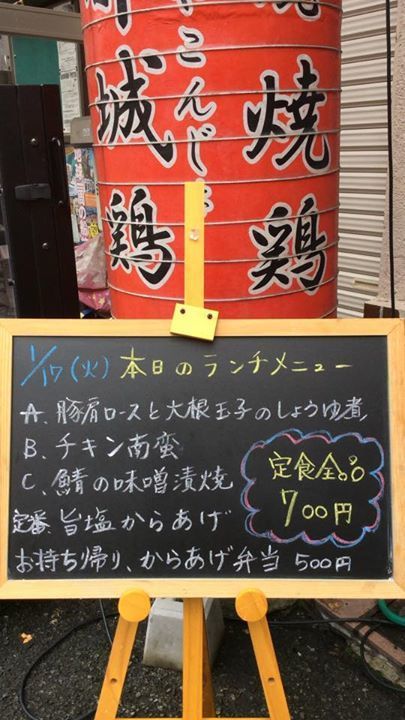 城鶏
こんじ
焼鶏
1/17(火)本日のランチメニュー
A. 豚肩ロースと大根玉子のしょうゆ煮
B. チキン南蛮
C. 鯖の味噌漬焼
定番.旨塩からあげ
お持ち帰り、からあげ弁当 500円
定食全品
700円